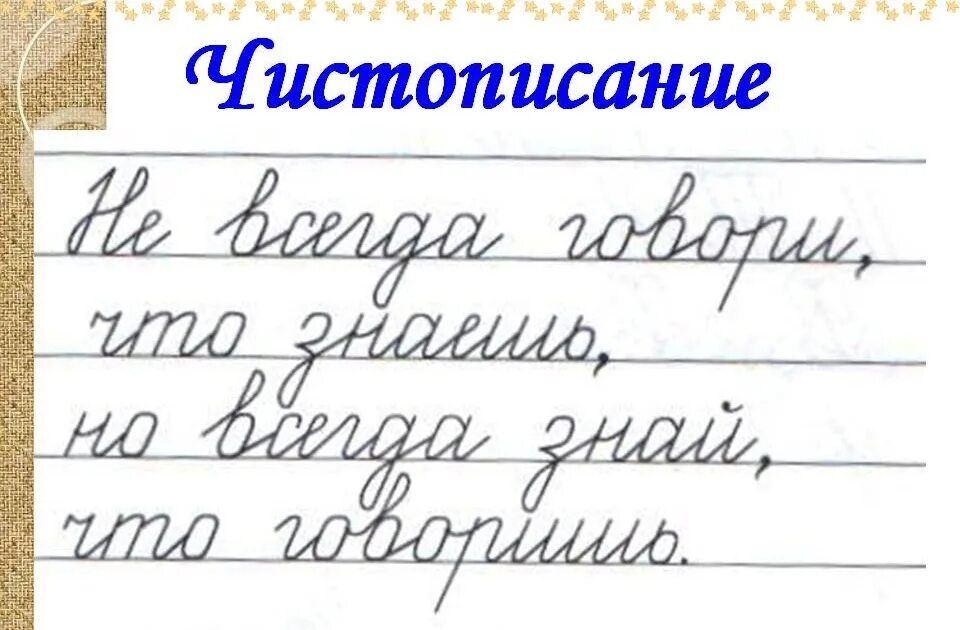 Чистописание
Не всегда говори,
что знаешь,
но всегда знай,
что говоришь.